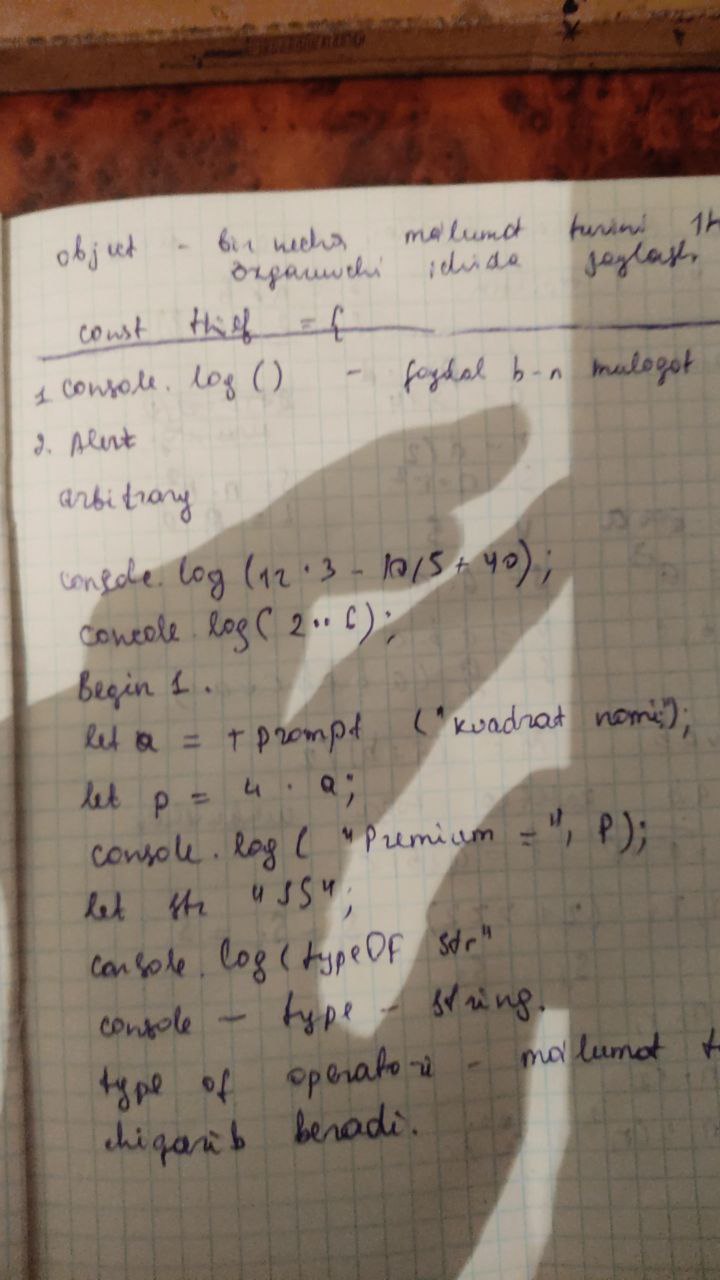 object - bir necha ma'lumot turini 1t
ozgaruvchi ichida saqlash.
const thief = {
1 console. log () - foydal b-n muloqot
2. Alert
arbitrary
console. log (12 · 3 - 10/5 + 40);
console. log( 2 ·· 6);
Begin 1.
let a = + prompt ("kvadrat nomi:");
let p = 4 · a;
console. log ( "Premium =", P);
let str "JS";
console. log (typeOF str"
console — type - string.
type of operato-i - ma'lumot t
chiqarib beradi.